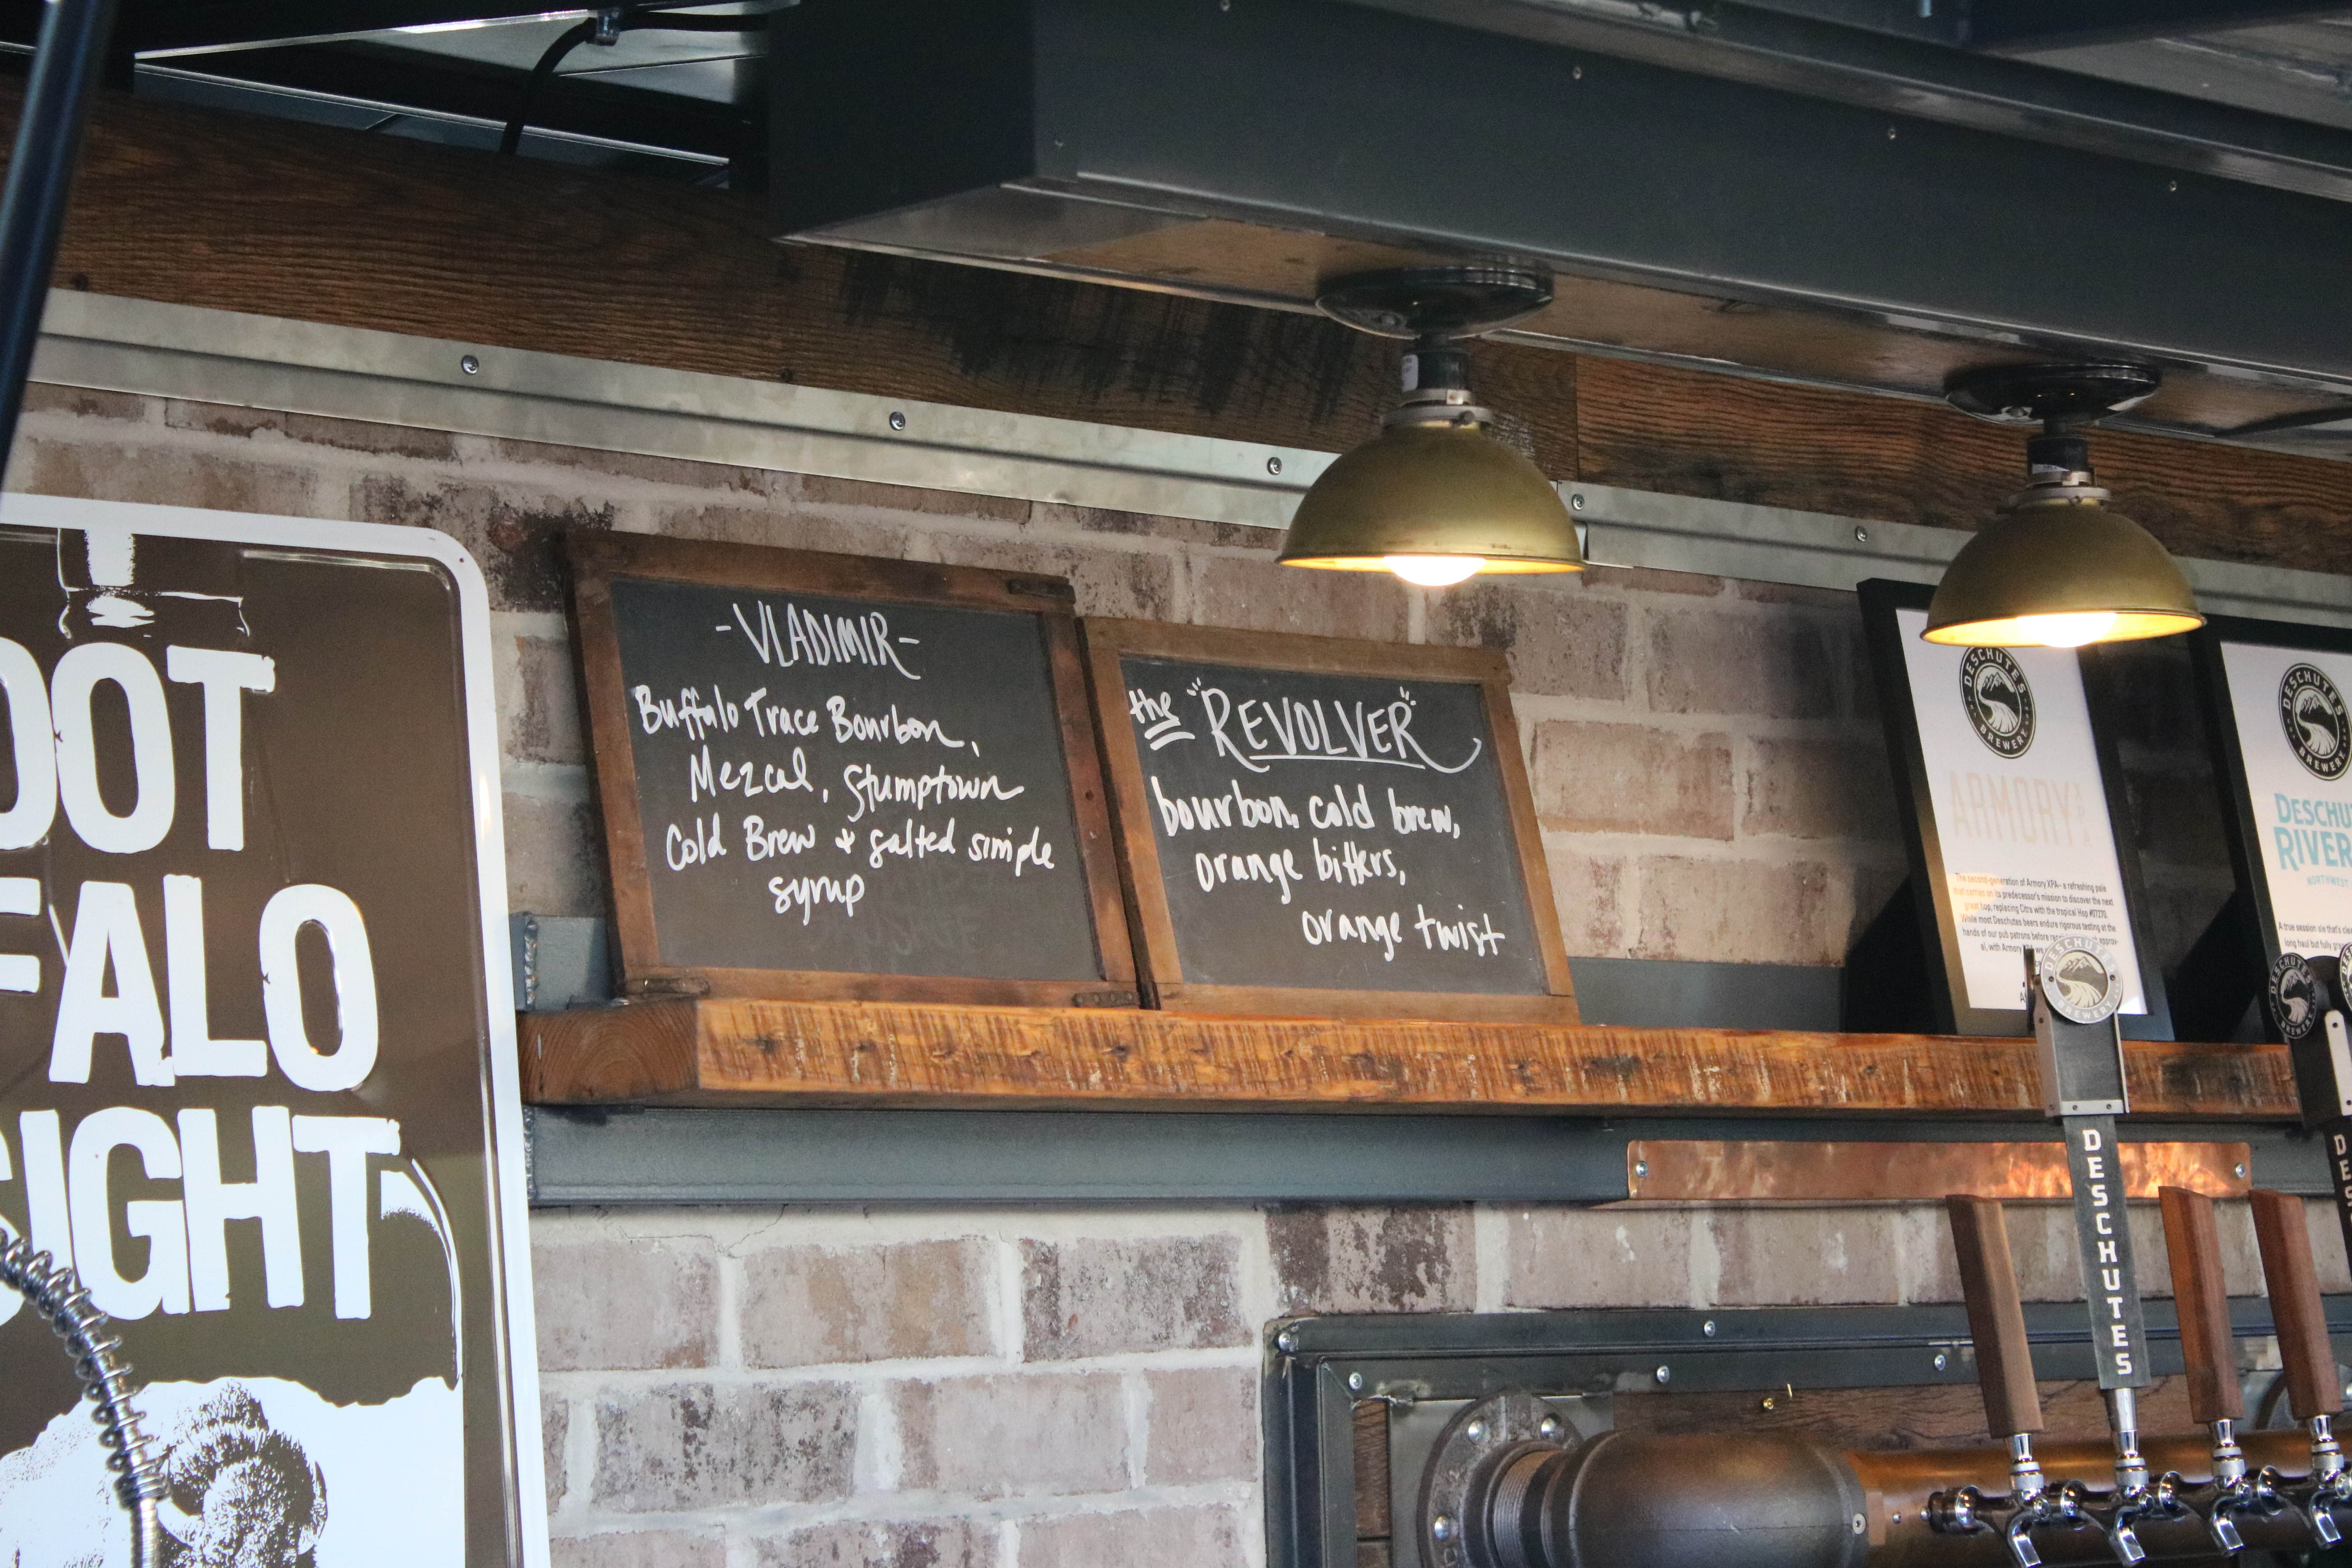 OOT
FALO
SIGHT
-VLADIMIR-
Buffalo Trace Bourbon,
Mezcal, Stumptown
Cold Brew & salted simple
syrup
the "REVOLVER"
bourbon, cold brew,
orange bitters,
orange twist
DESCHUTES
BREWERY
ARMORY
XPA
The second-generation of Armory XPA– a refreshing pale
that carries on its predecessor's mission to discover the next
great hop, replacing Citra with the tropical Hop #07270.
While most Deschutes beers endure rigorous testing at the
hands of our pub patrons before
al, with Armory
DESCHUTES
BREWERY
DESCHU
RIVER
NORTHWEST
A true session ale that's
long haul but fully
DESCHUTES
BREWERY
DESCHUTES
DESCHUTES
BREWERY
DES